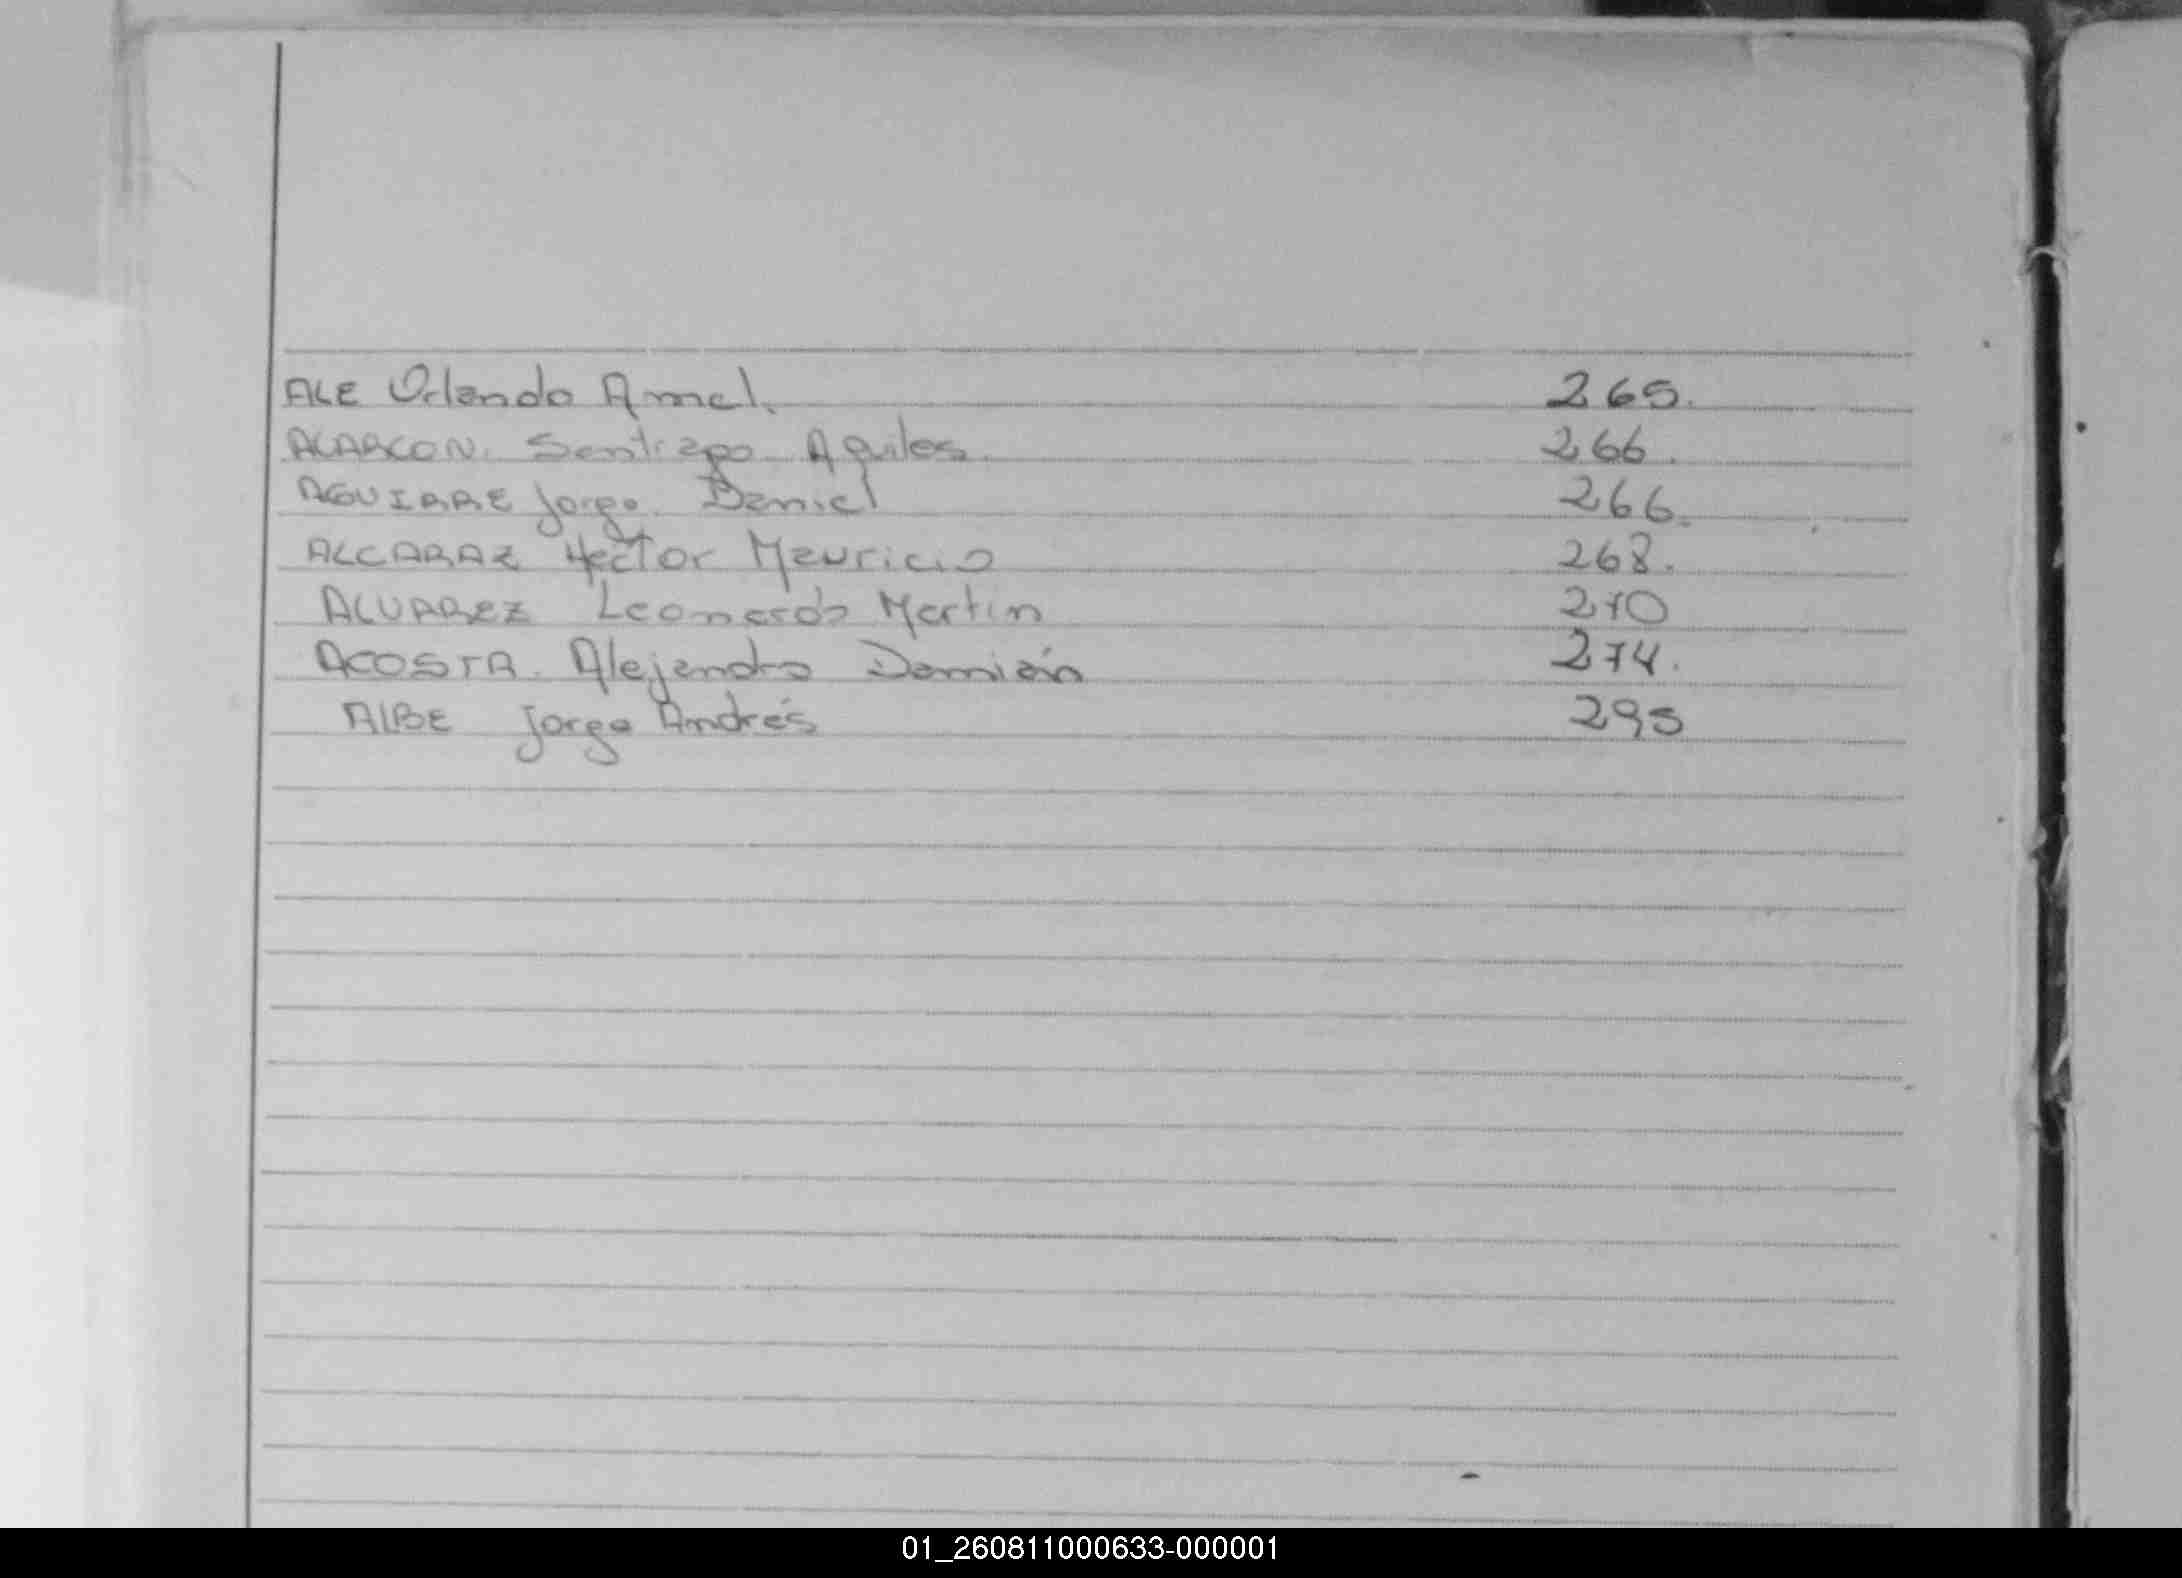 ALE Orlando Amel. 265.
ALARCON. Santiago Aquiles. 266.
AGUIRRE Jorge. Daniel 266.
ALCARAZ Hector Mauricio 268.
ALVAREZ Leonardo Martin 270
ACOSTA. Alejandro Damián 274.
ALBE Jorge Andrés 295
01_260811000633-000001